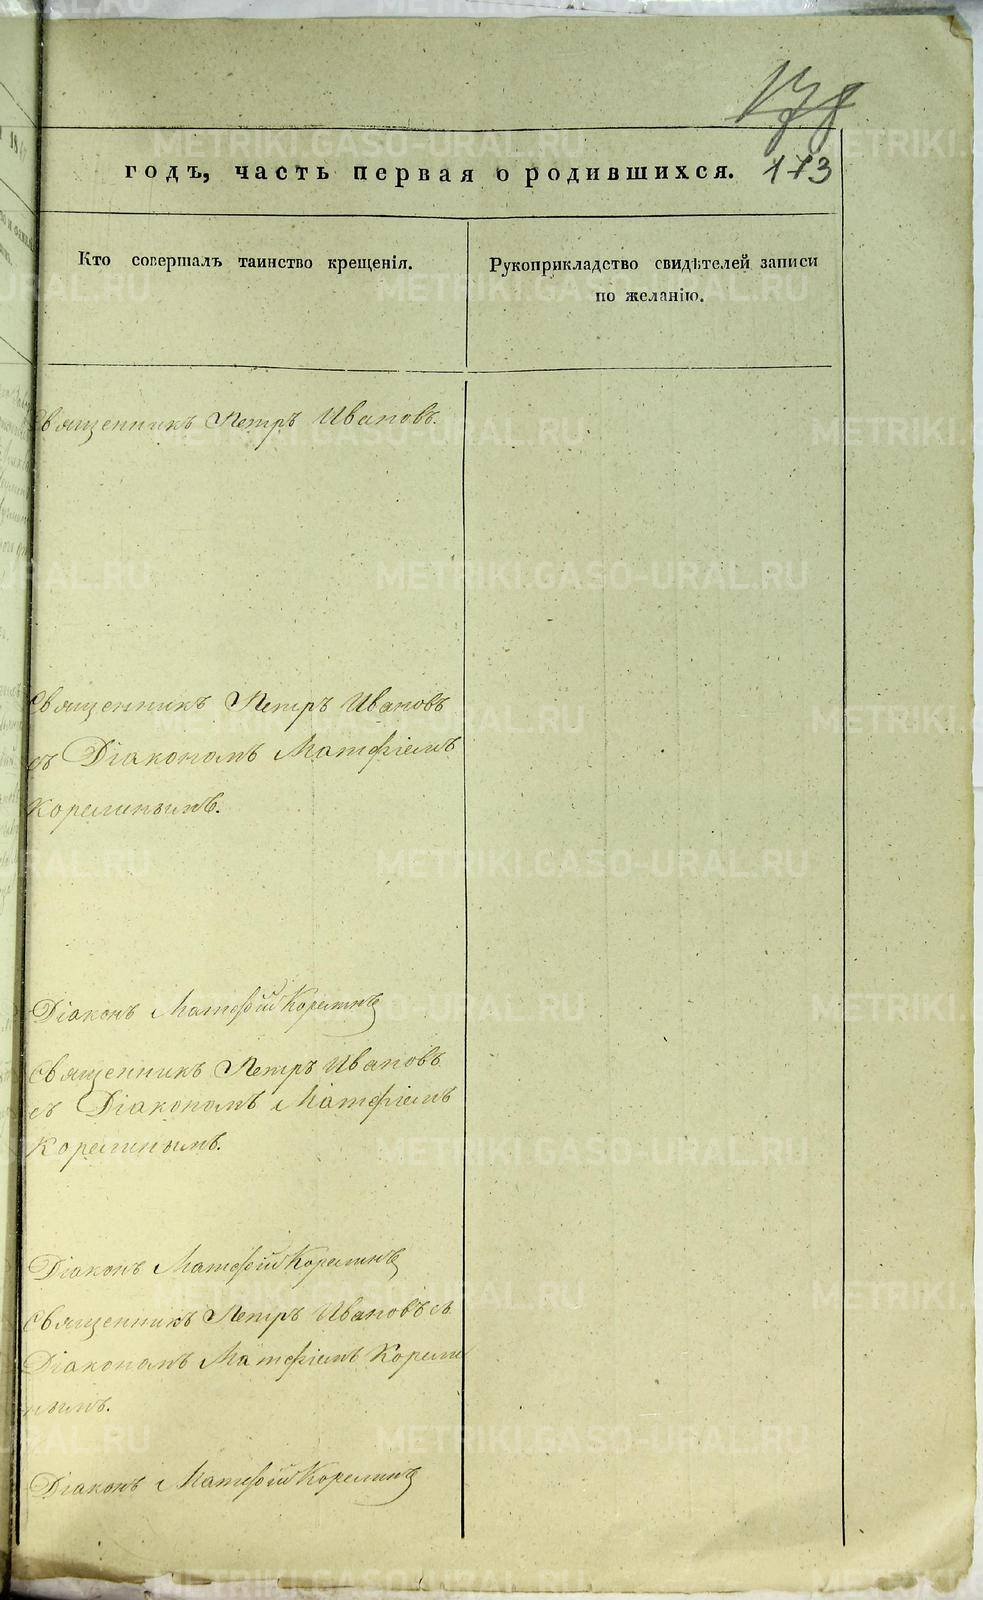 178
годъ, часть первая о родившихся. 173
Кто совершалъ таинство крещенія.
Рукоприкладство свидѣтелей записи
по желанію.
Священникъ Петръ Ивановъ.
Священникъ Петръ Ивановъ
съ Діакономъ Матфіемъ
Корелинымъ.
Діаконъ Матфій Корелинъ
Священникъ Петръ Ивановъ
съ Діакономъ Матфіемъ
Корелинымъ.
Діаконъ Матфій Корелинъ
Священникъ Петръ Ивановъ съ
Діакономъ Матфіемъ Корели
нымъ.
Діаконъ Матфій Корелинъ
METRIKI.GASO-URAL.RU